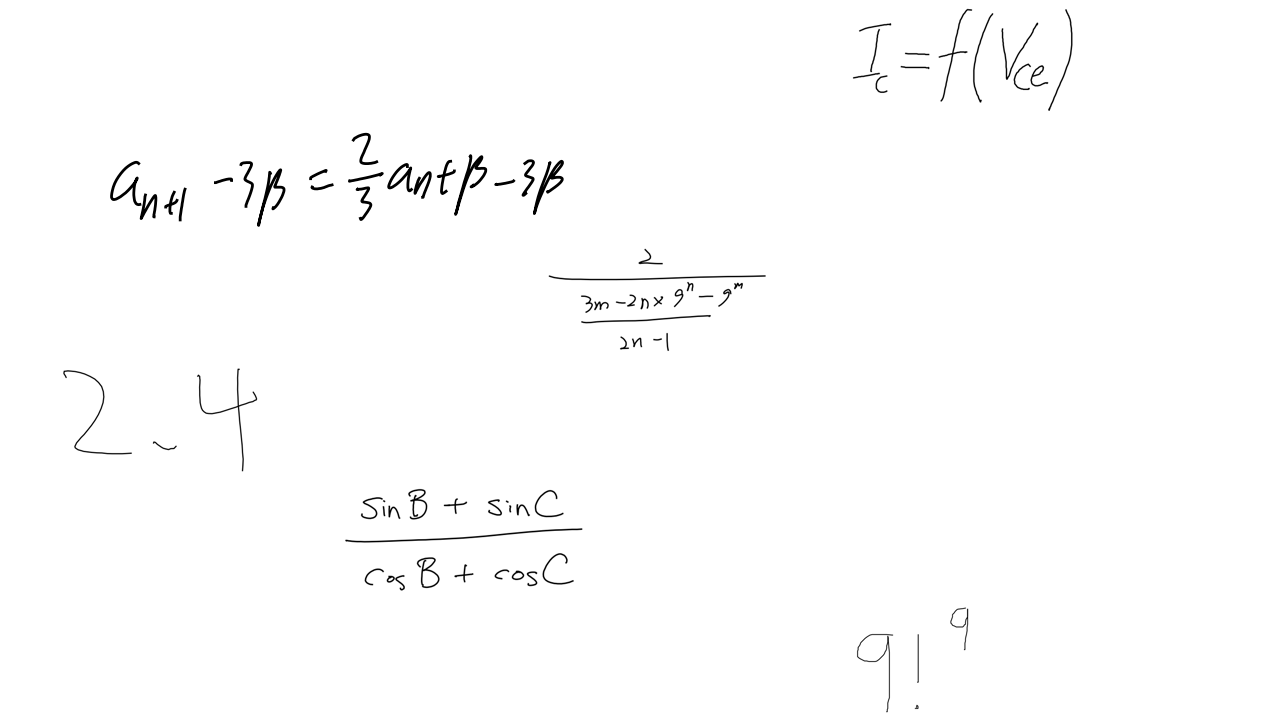 I_c = f(V_ce)
a_{n+1} - 3β = \frac{2}{3} a_n + β - 3β
\frac{2}{\frac{3m - 2n × 9^n - 9^m}{2n - 1}}
2.4
\frac{sin B + sin C}{cos B + cos C}
9!^9